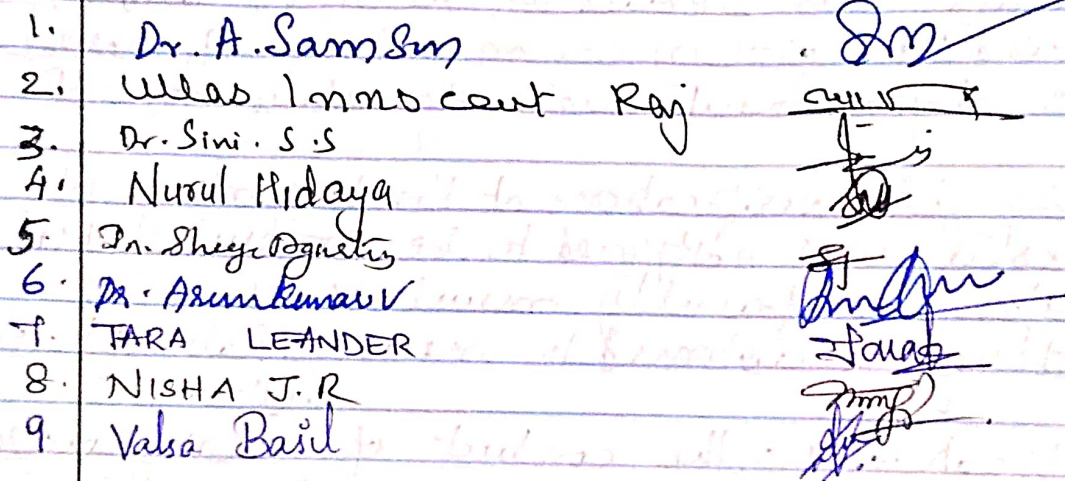 1. Dr. A. Samson
2. Ullas Innocent Raj
3. Dr. Sini. S.S
4. Nurul Hidaya
5. Dr.
6. Dr. Arunkumar V
7. TARA LEANDER
8. NISHA J. R
9 Valsa Basil